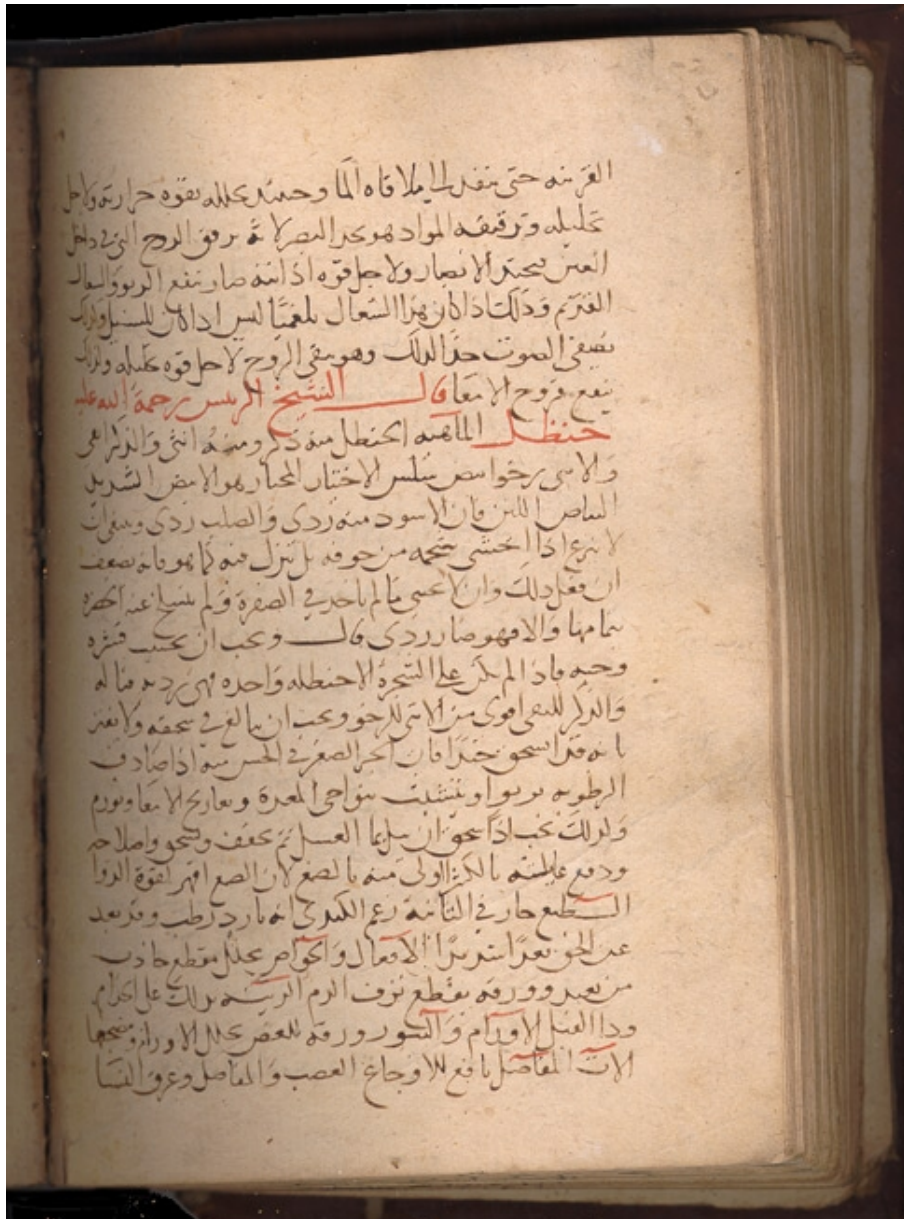 القريبه حتى ينفذ الى ملاقاه الما وحينئذ يحلله بقوه حرارته ولاجل
تحليله وترقيقه المواد هو يحد البصر لانه يرقق الروح التي في داخل
العين ولاجل قوه اذابته صار ينفع الربو والسعال
المزمن وذلك اذا كان هذا السعال بلغميا ليس اذا كان للسل ولذلك
يصفى الصوت جدا لذلك وهو ينقى لاجل قوه تحليله ولذلك
ينفع قروح الامعا قال الشيخ الرييس رحمة الله عليه
حنظل الماهيه الحنظل منه ذكر ومنه انثى والذكر ليفى
والانثى رخو ابيض سلس الاختيار المختار هو الابيض الشديد
البياض اللين فان الاسود منه ردى والصلب ردى وينبغى ان
لا ينزع اذا اجتنى شحمه من جوفه بل يترك فيه كما هو فانه يضعف
ان فعل ذلك وان لا يجنى ما لم ياخذ في الصفرة ولم ينسلخ عنه الخضره
بتمامها والا فهو ضار ردى قال ويجب ان يجتنب قشره
وحبه فاذا لم يكن على الشجرة الا حنظله واحده فهى رديه قتاله
والذكر الليفى اقوى من الانثى الرخو ويجب ان يبالغ في سحقه ولا يغتر
بانه قد انسحق جيدا فان الجز الصغير في الحس منه اذا صادف
الرطوبه يربو او يتشبث بنواحى المعدة وتعاريج الامعا ويورم
ولذلك يجب اذا سحق ان يبل بما العسل ثم يجفف ويسحق واصلاحه
ودفع غايلته بالكثيرا اولى منه بالصمغ لان الصمغ اقهر لقوة الدوا
الطبع حار في الثالثه زعم الكندى انه بارد رطب وقد بعد
عن الحق بعدا شديدا الافعال والخواص محلل مقطع جاذب
من بعيد وورقه يقطع نزف الدم الزينه يدلك على الجذام
ودا الفيل الاورام والبثور ورقه الغض يحلل الاورام وينضجها
الات المفاصل نافع لاوجاع العصب والمفاصل وعرق النسا